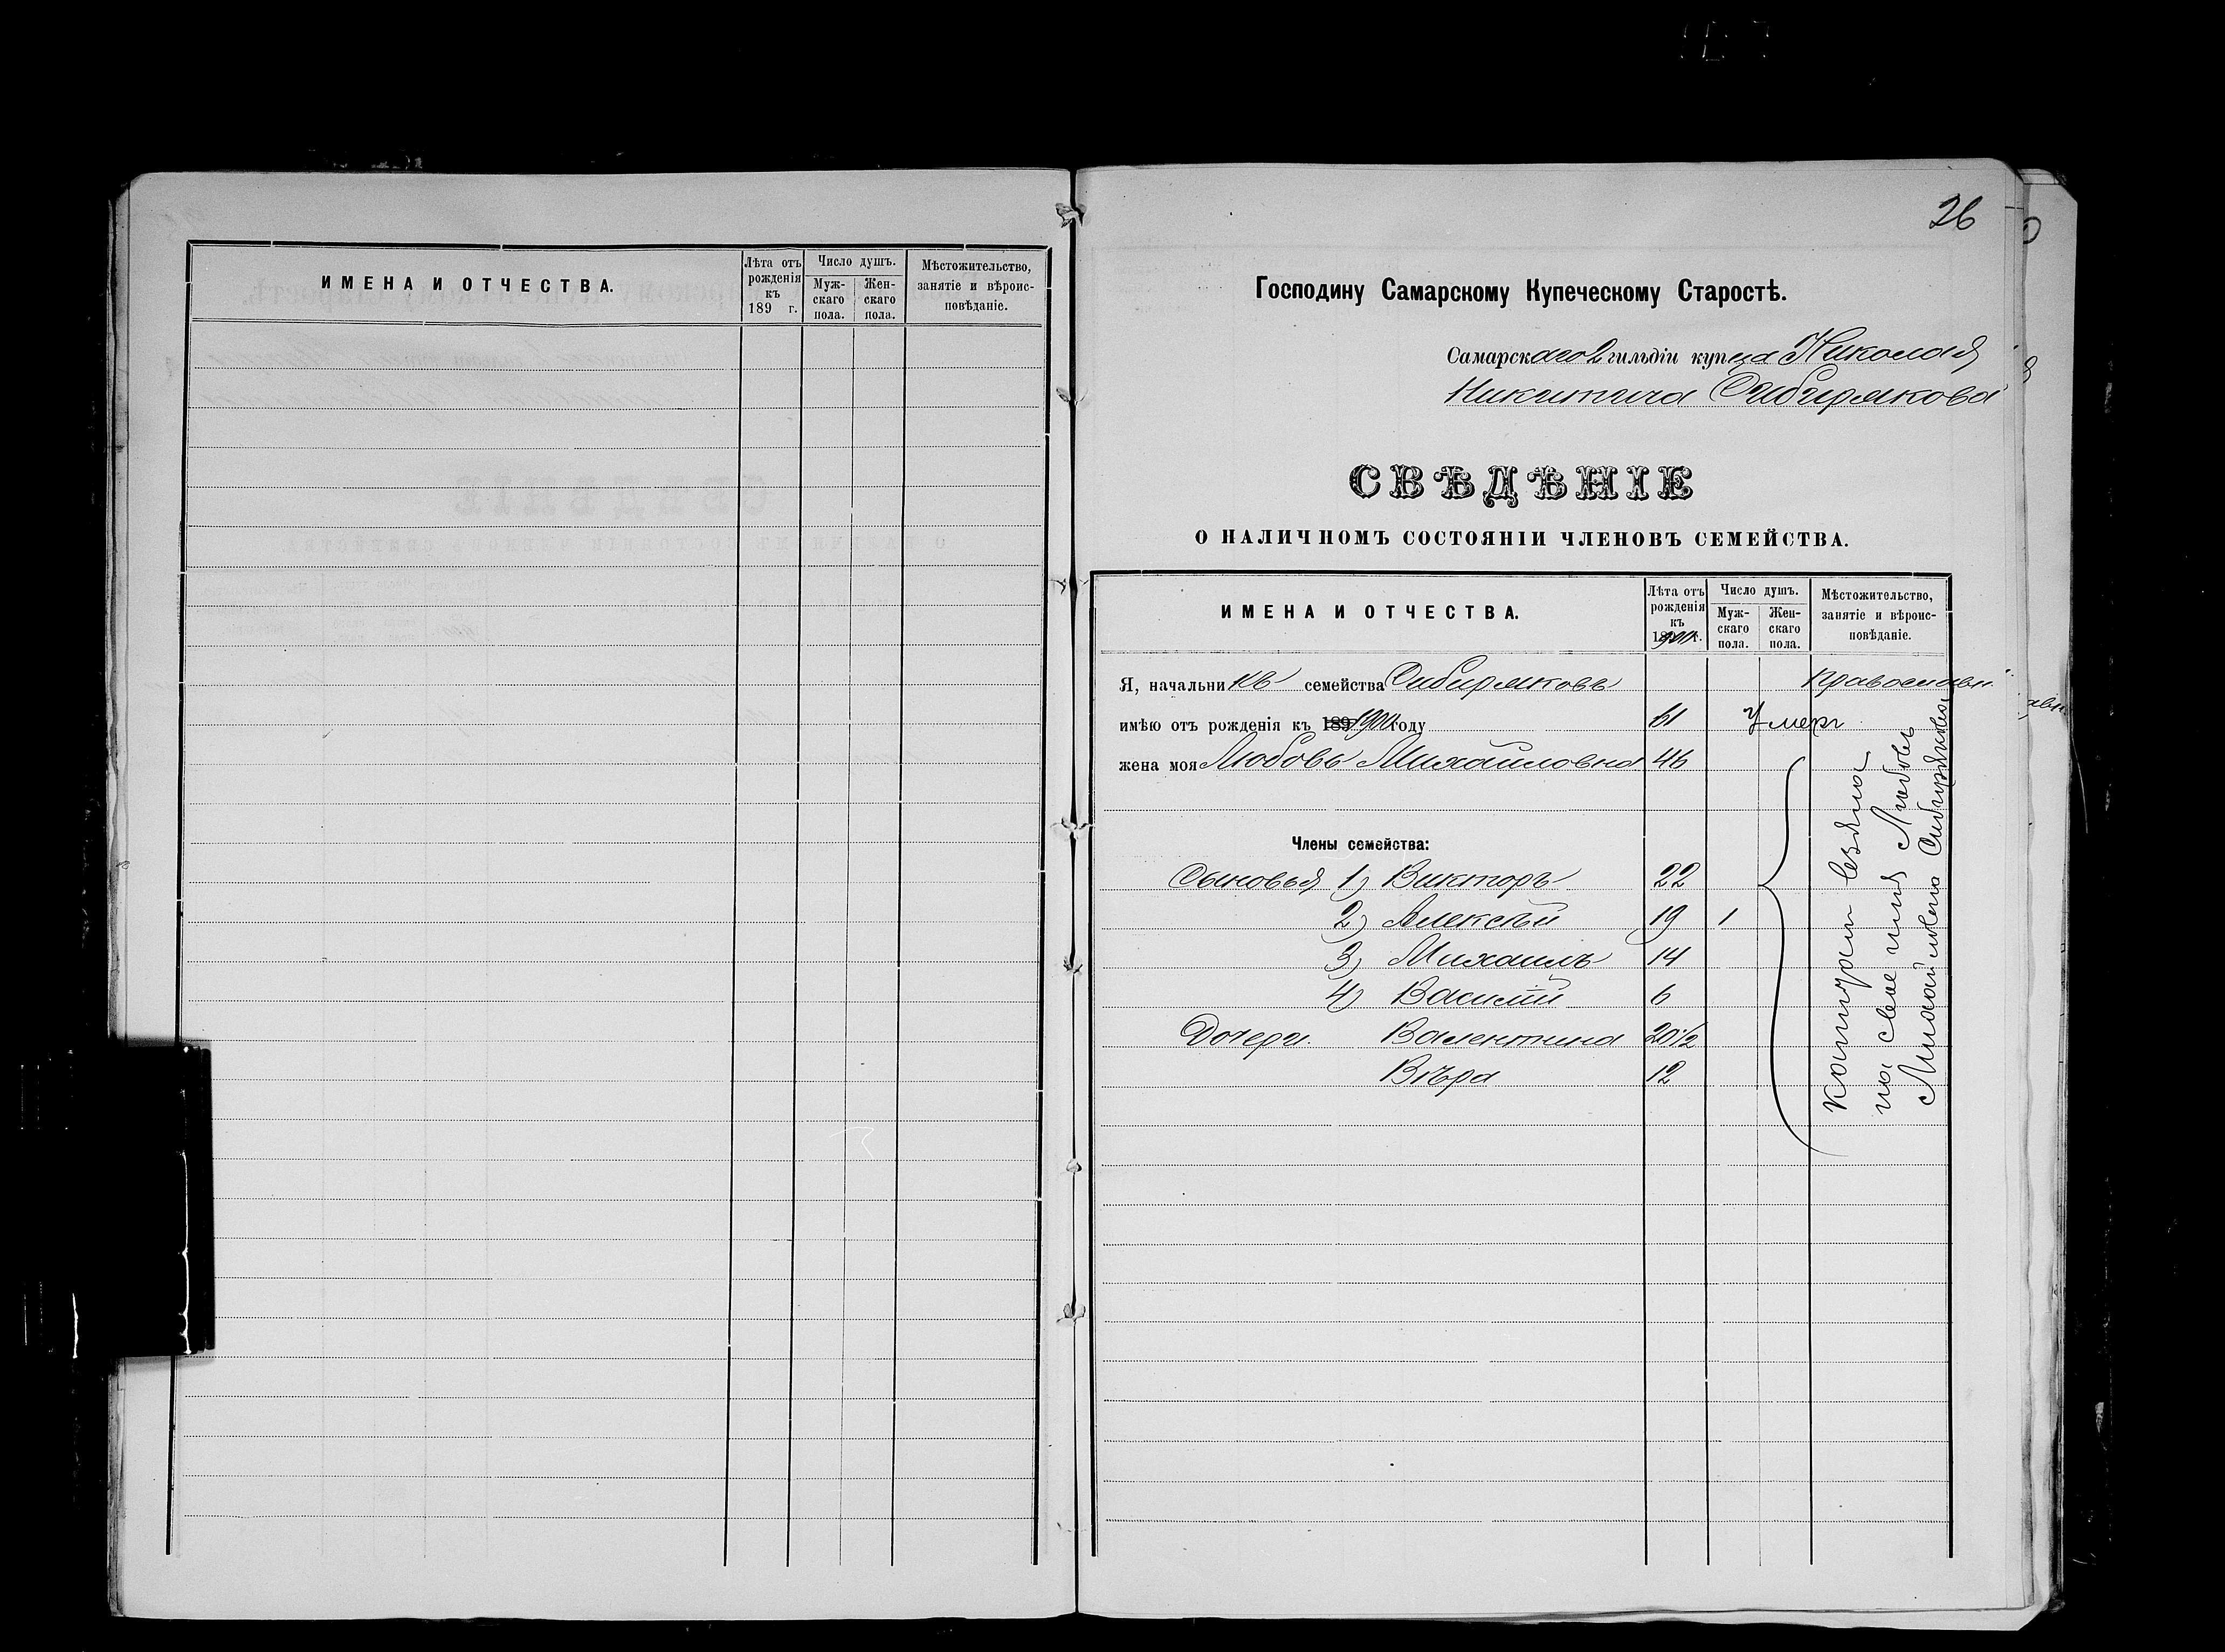 ИМЕНА И ОТЧЕСТВА.
Лѣта отъ рожденія къ 189 г.
Число душъ.
Мужскаго пола.
Женскаго пола.
Мѣстожительство, занятіе и вѣроисповѣданіе.
26
Господину Самарскому Купеческому Старостѣ.
Самарскаго 2 гильдіи купца Николая
Никитича Сибирякова
СВѢДѢНІЕ
О НАЛИЧНОМЪ СОСТОЯНІИ ЧЛЕНОВЪ СЕМЕЙСТВА.
ИМЕНА И ОТЧЕСТВА.
Лѣта отъ рожденія къ г.
Число душъ.
Мужскаго пола.
Женскаго пола.
Мѣстожительство, занятіе и вѣроисповѣданіе.
Я, начальникъ семейства Сибиряковъ Православн
имѣю отъ рожденія къ году 61 Умеръ
жена моя Любовь Михайловна 46
Члены семейства:
Сыновья 1) Викторъ 22
2) Алексѣй 19 1
3) Михаилъ 14
4) Василій 6
Дочери. Валентина 20 1/2
Вѣра 12
Капиталъ взяла
на свое имя Любовь
Михайловна Сибирякова